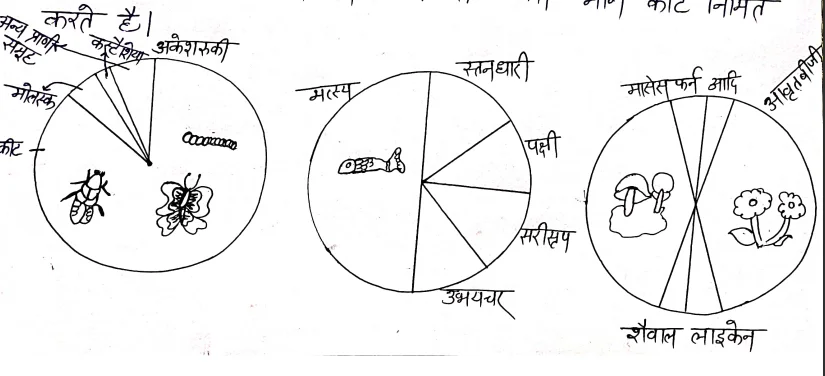 भाग कीट निर्मित
करते है।
अन्य प्राणी
समूह
क्रस्टेशिया
अकेशरुकी
मोलस्क
कीट
मत्स्य
स्तनधारी
पक्षी
सरीसृप
उभयचर
मासेस फर्न आदि
आवृतबीजी
शैवाल लाइकेन